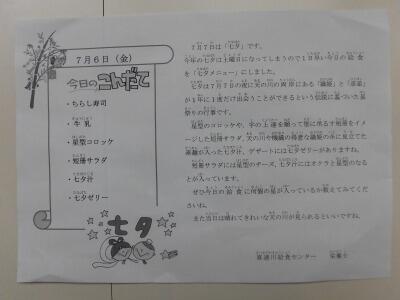 7月6日（金）
今日のこんだて
・ちらし寿司
・牛乳
・星型コロッケ
・短冊サラダ
・七夕汁
・七夕ゼリー
七夕
7月7日は「七夕」です。
今年の七夕は土曜日になってしまうので1日早い今日の給食
を「七夕メニュー」にしました。
七夕は7月7日の夜に天の川の両岸にある「織姫」と「彦星」
が1年に1度だけ出会うことができるという伝説に基づいた星
祭りの行事です。
星型のコロッケや、字の上達を願って笹に吊るす短冊をイメ
ージした短冊サラダ、天の川や機織の得意な織姫の糸に見立てた
素麺が入った七夕汁、デザートには七夕ゼリーがありますね。
短冊サラダには星型のチーズ、七夕汁にはオクラと星型のなる
とが入っています。
ぜひ今日の給食に何個の星が入っているか数えてみてくだ
さいね。
また当日は晴れてきれいな天の川が見られるといいですね。
喜連川給食センター 栄養士